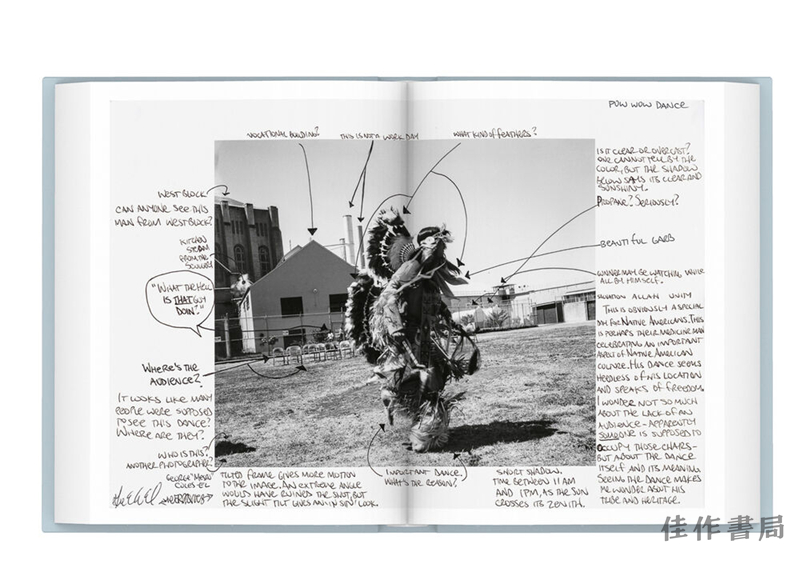 POW WOW DANCE
VOCATIONAL BUILDING?
THIS ISN'T A WORK DAY
WHAT KIND OF FEATHERS?
WEST BLOCK
CAN ANYONE SEE THIS
MAN FROM WEST BLOCK?
KITCHEN
STEAM
FROM THE
SCULLERY
"WHAT THE HELL
IS THAT GUY
DOIN'?"
WHERE'S THE
AUDIENCE?
IT LOOKS LIKE MANY
PEOPLE WERE SUPPOSED
TO SEE THIS DANCE?
WHERE ARE THEY?
WHO IS THIS?
ANOTHER PHOTOGRAPHER?
GEORGE "MESRO"
COLES-EL
TILTED FRAME GIVES MORE MOTION
TO THE IMAGE. AN EXTREME ANGLE
WOULD HAVE RUINED THE SHOT, BUT
THE SLIGHT TILT GIVES AN 'IN SYN' LOOK.
IMPORTANT DANCE.
WHAT'S THE REASON?
SHORT SHADOW.
TIME BETWEEN 11 AM
AND 1PM, AS THE SUN
CROSSES ITS ZENITH.
IS IT CLEAR OR OVERCAST?
ONE CANNOT TELL BY THE
COLOR, BUT THE SHADOW
BELOW SAYS IT'S CLEAR AND
SUNSHINY.
PROPANE? SERIOUSLY?
BEAUTIFUL GARB
ALL BY HIMSELF.
THIS IS OBVIOUSLY A SPECIAL
DAY FOR NATIVE AMERICANS. THIS
IS PERHAPS THEIR MEDICINE MAN
CELEBRATING AN IMPORTANT
ASPECT OF NATIVE AMERICAN
CULTURE. HIS DANCE SEEMS
HEEDLESS OF HIS LOCATION
AND SPEAKS OF FREEDOM.
I WONDER NOT SO MUCH
ABOUT THE LACK OF AN
AUDIENCE - APPARENTLY
SOMEONE IS SUPPOSED TO
OCCUPY THOSE CHAIRS -
BUT ABOUT THE DANCE
ITSELF AND ITS MEANING.
SEEING THE DANCE MAKES
ME WONDER ABOUT HIS
TRIBE AND HERITAGE.
佳作書局